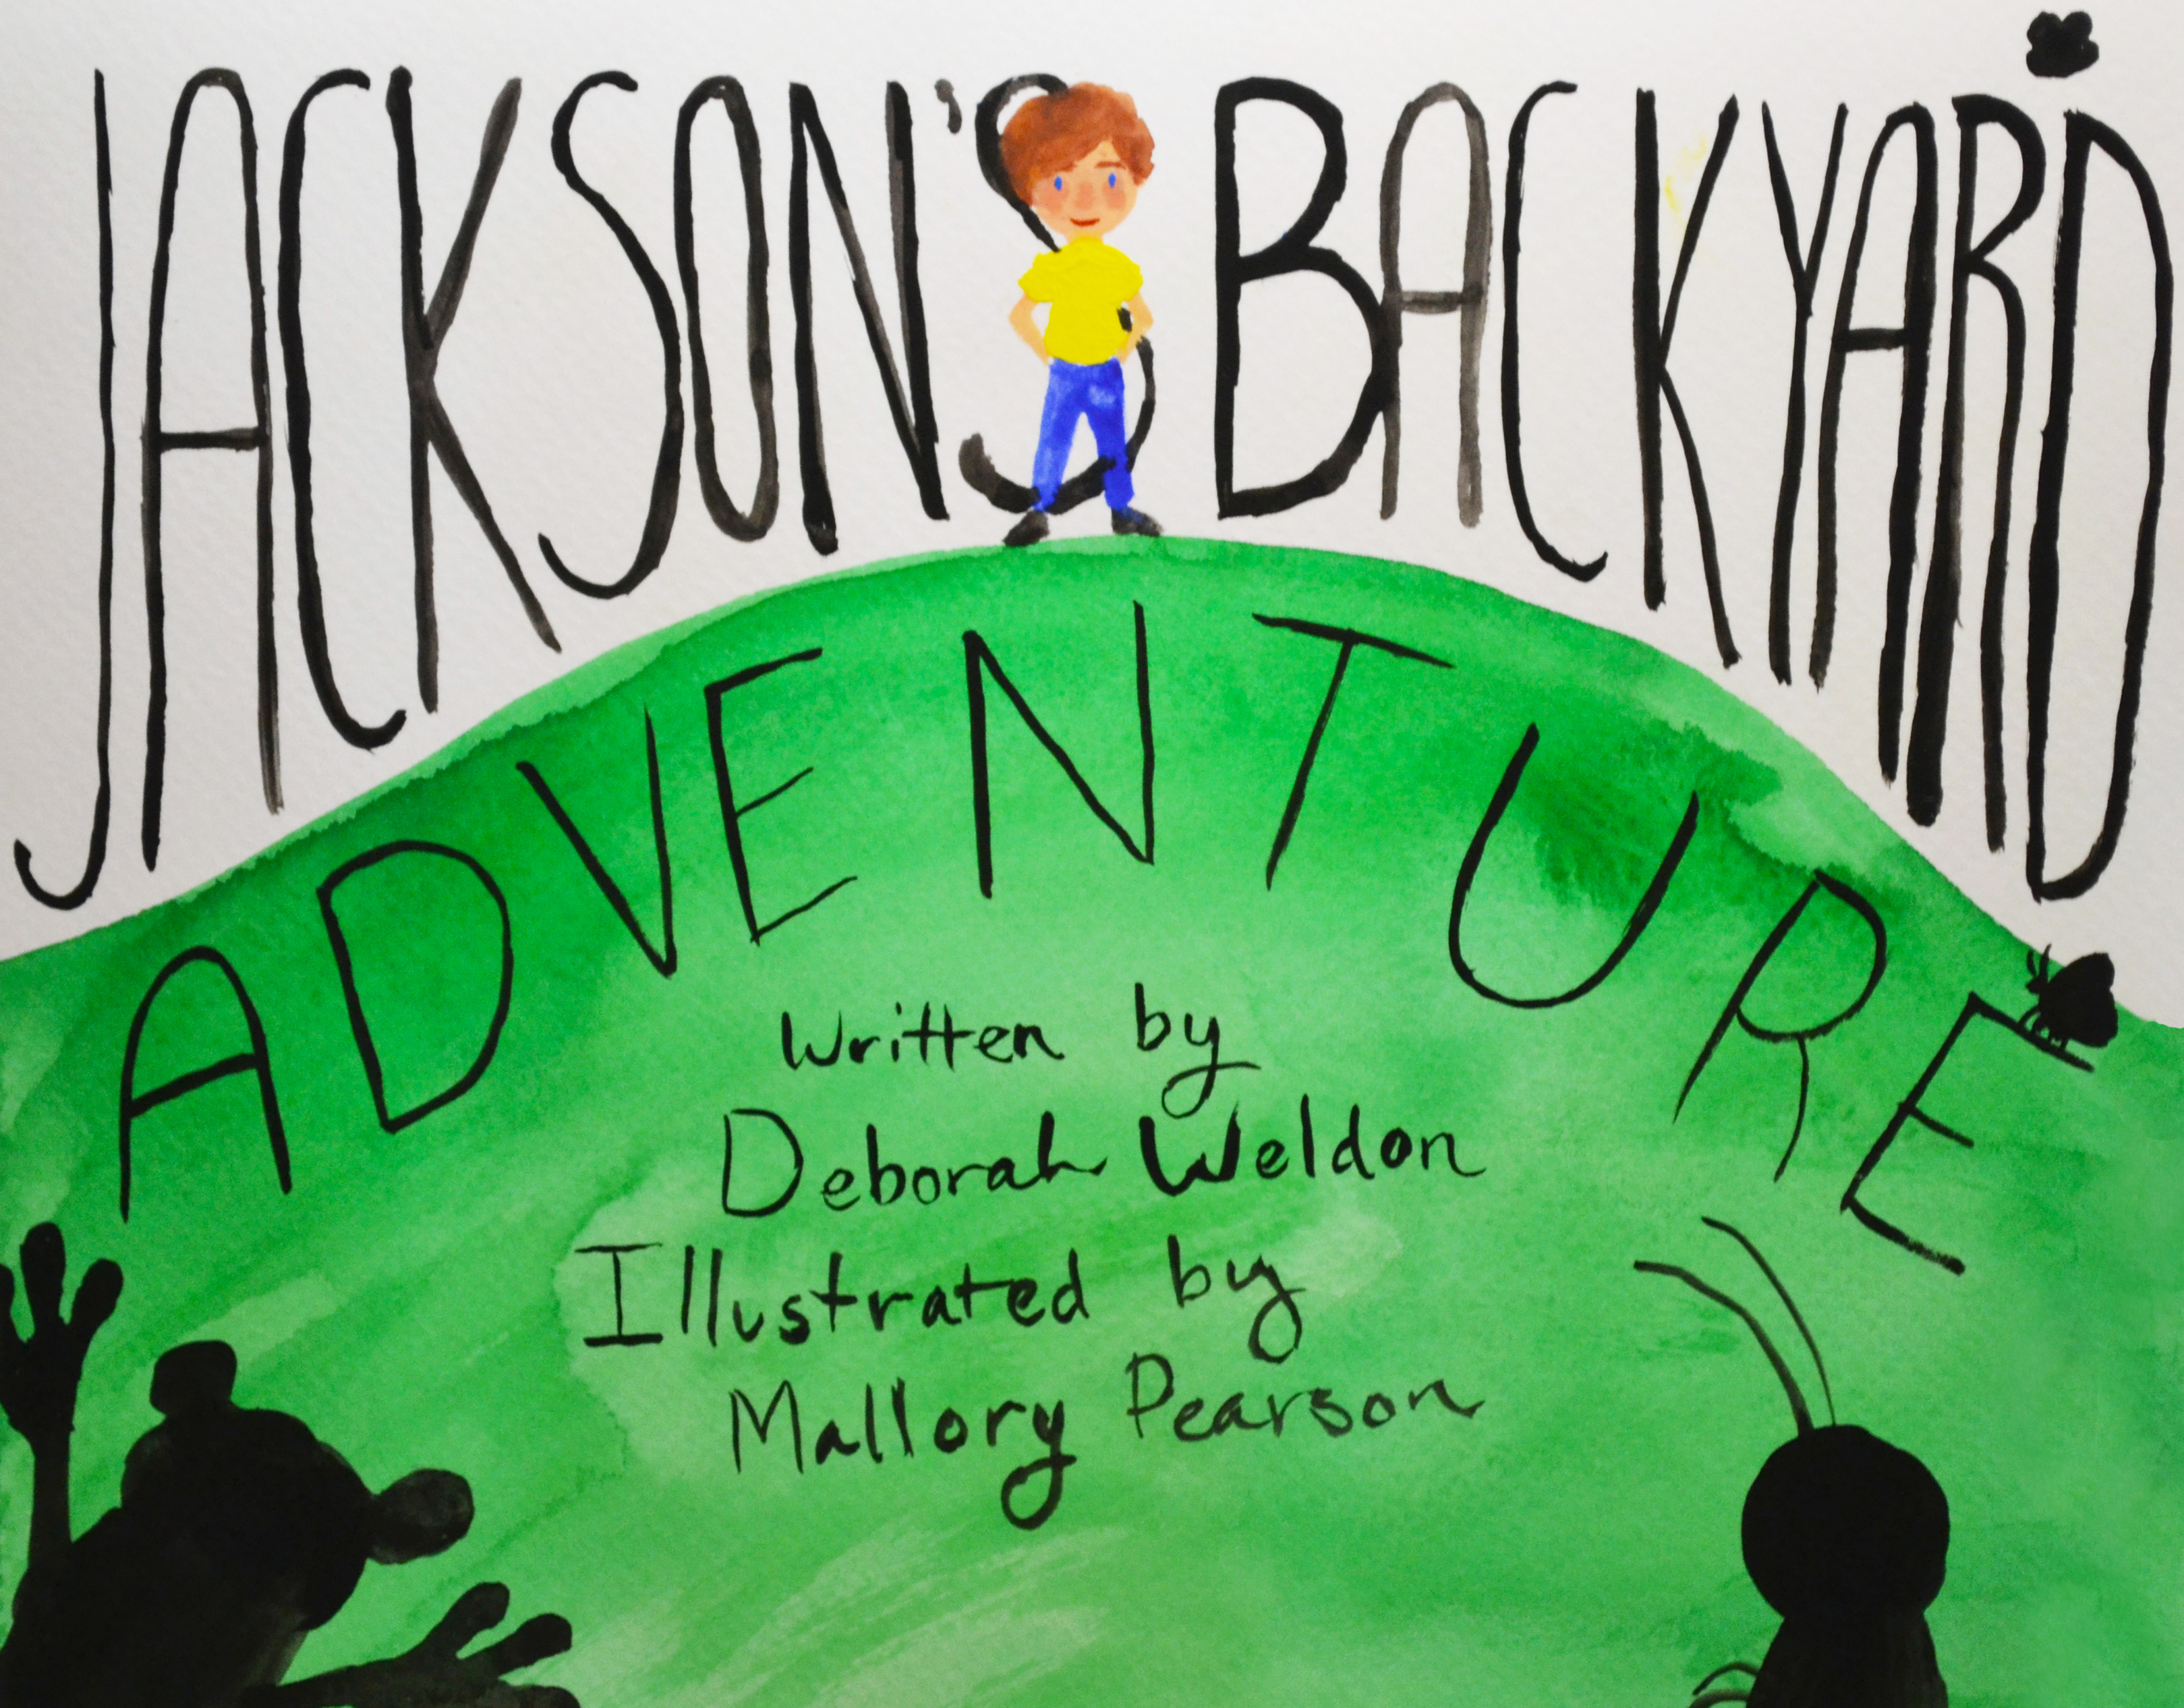 JACKSON'S BACKYARD
ADVENTURE
Written by
Deborah Weldon
Illustrated by
Mallory Pearson